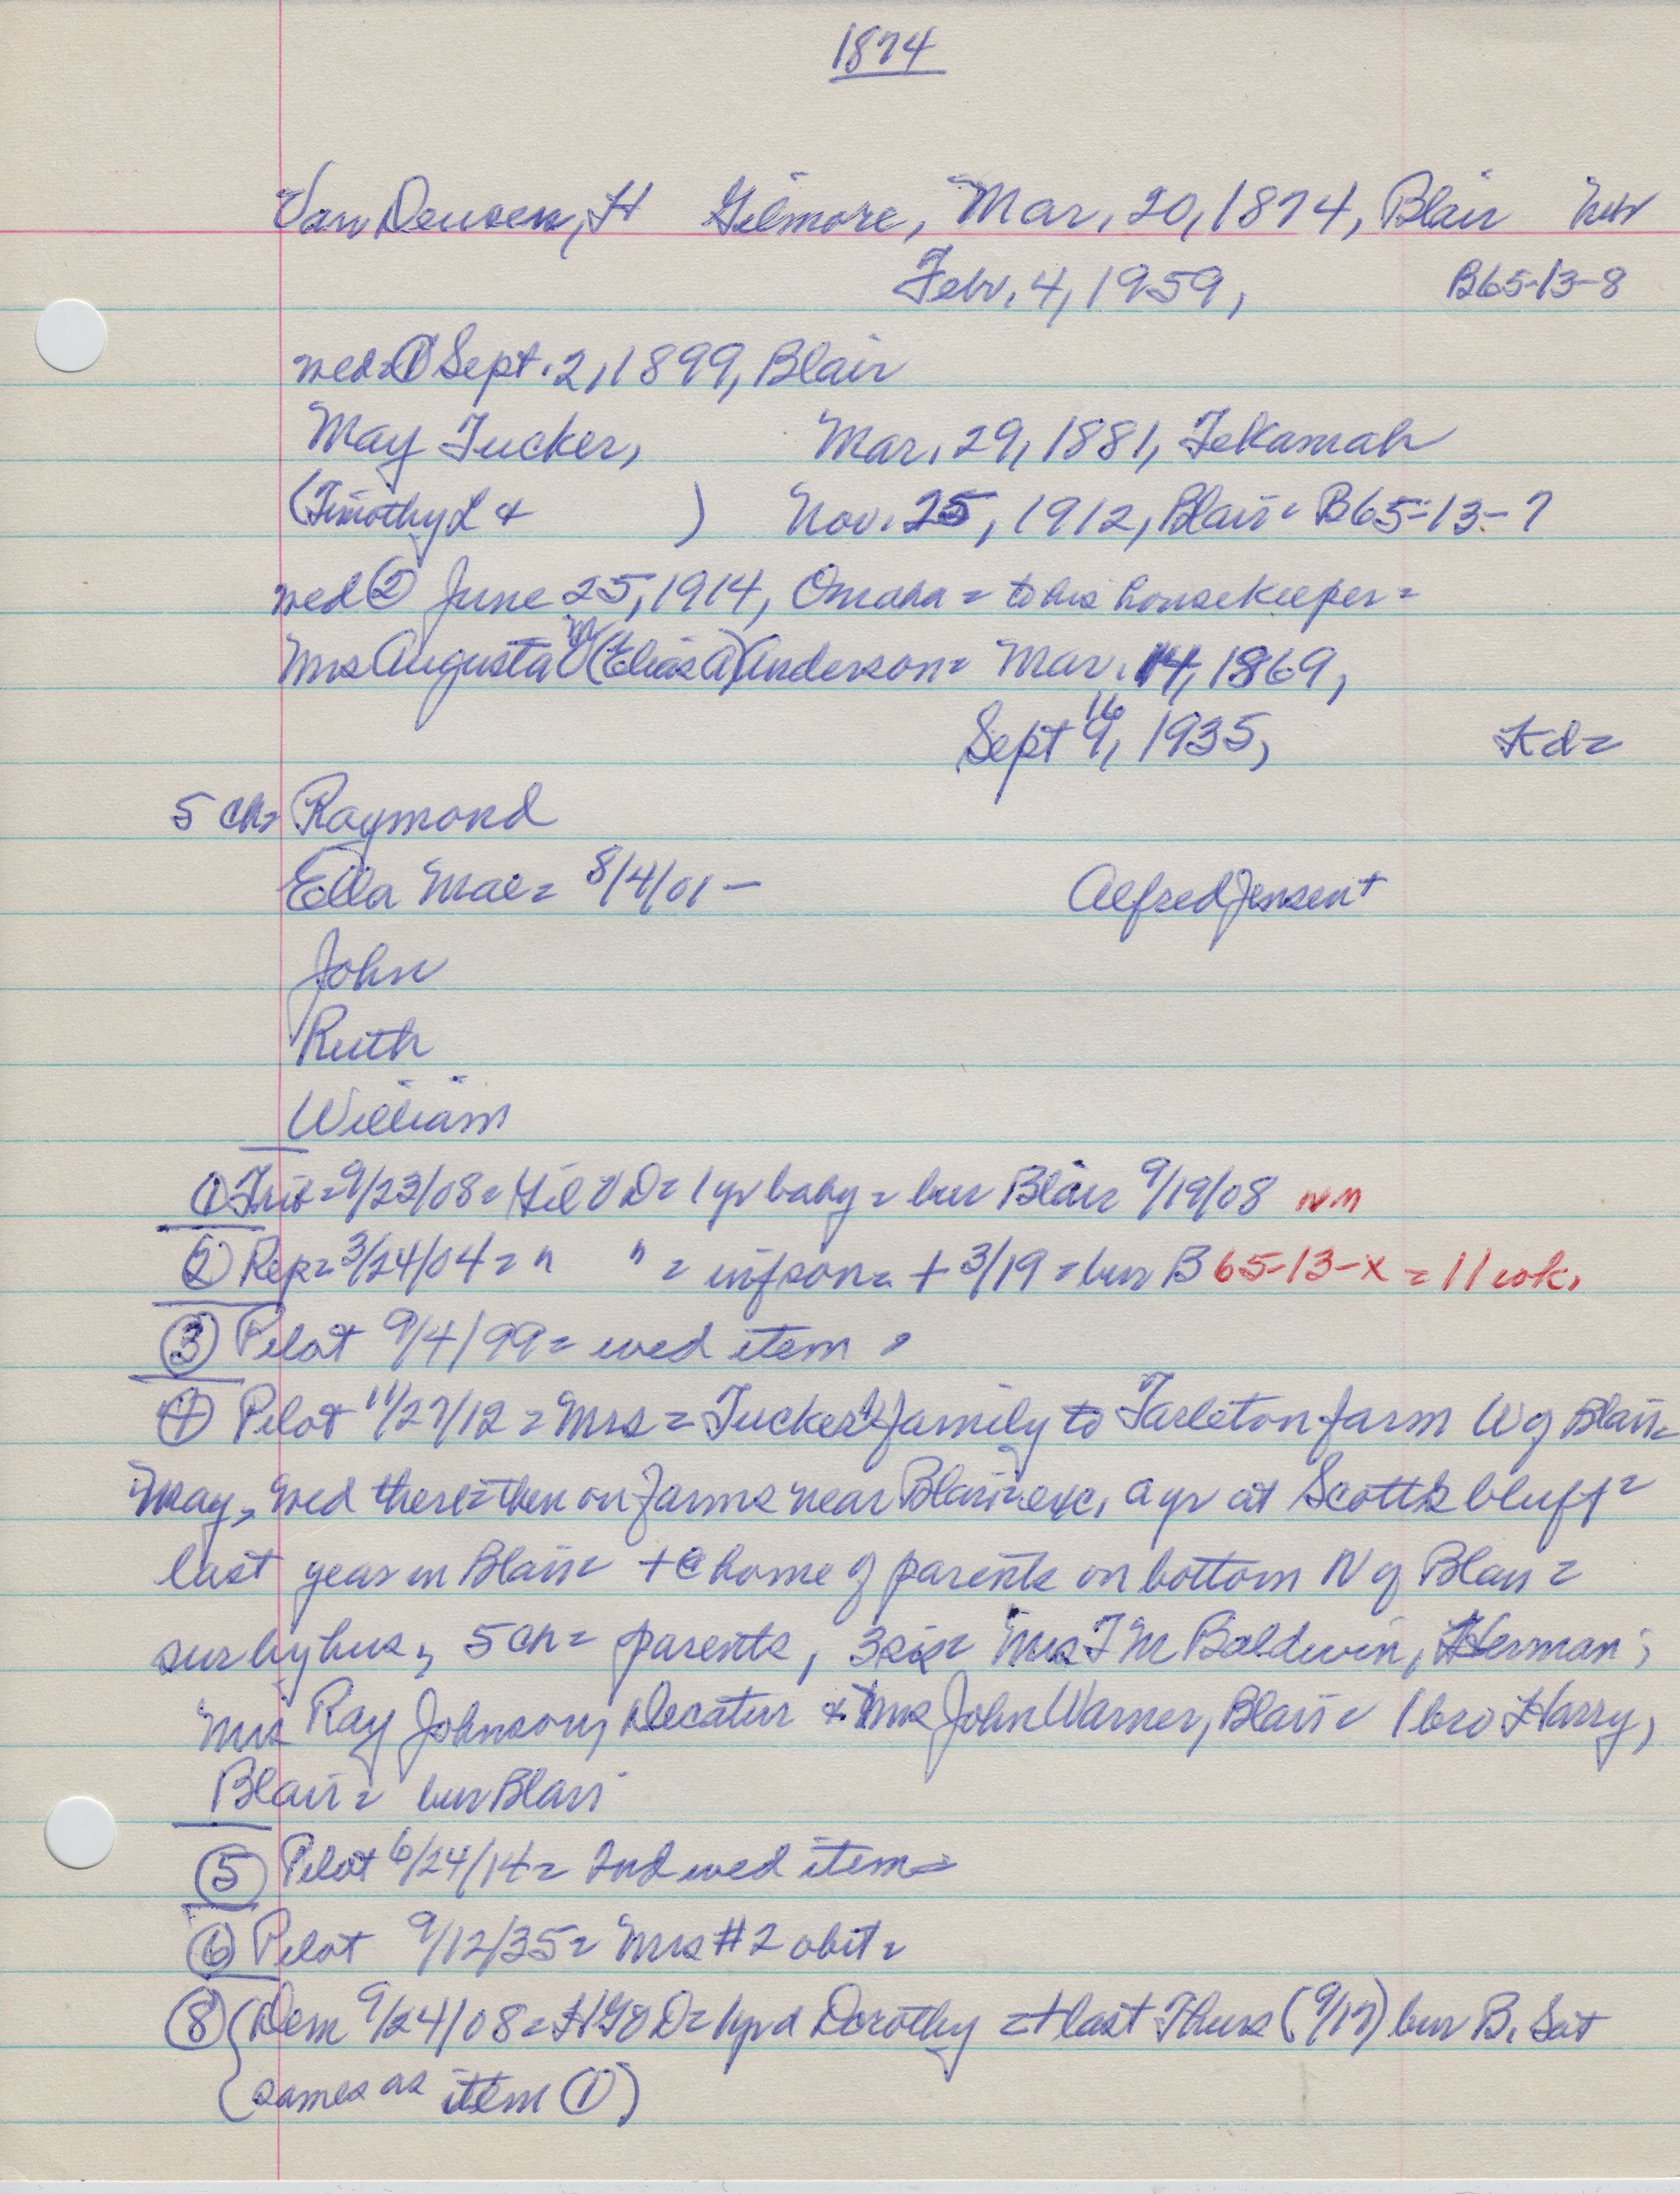 1874
Van Deusen, H Gilmore, Mar. 20, 1874, Blair
Febr. 4, 1959, B65-13-8
wed=① Sept. 2, 1899, Blair
May Tucker, Mar. 29, 1881, Tekamah
(Timothy L & ) Nov. 25, 1912, Blair= B65-13-7
wed ② June 25, 1914, Omaha = to his housekeeper=
Mrs Augusta M (Elias A) Anderson= Mar. 14, 1869,
Sept 9, 16 1935,
5 ch= Raymond
Ella Mae= 8/4/01 - Alfred Jensen+
John
Ruth
William
① Trib=9/23/08= Gil VD= 1 yr baby= bur Blair 9/19/08 NM
② Rep=3/24/04= " " = inf son= + 3/19 = bur B 65-13-X = 11 wk.
③ Pilot 9/4/99= wed item =
④ Pilot 11/27/12 = Mrs = Tucker family to Tarleton farm W of Blair=
May, wed there= then on farms near Blair= exc. a yr at Scottsbluff=
last year in Blair= + @ home of parents on bottom N of Blair=
sur by hus, 5 ch= parents, 3 sis= Mrs F M Baldwin, Herman;
Mrs Ray Johnson, Decatur & Mrs John Warner, Blair= 1 bro Harry,
Blair= bur Blair
⑤ Pilot 6/24/14= 2nd wed item=
⑥ Pilot 9/12/35= Mrs #2 obit=
⑧ (Dem 9/24/08= HGVD= 1 yr d Dorothy =+ last Thurs (9/17) bur B. Sat
(same as item ①)